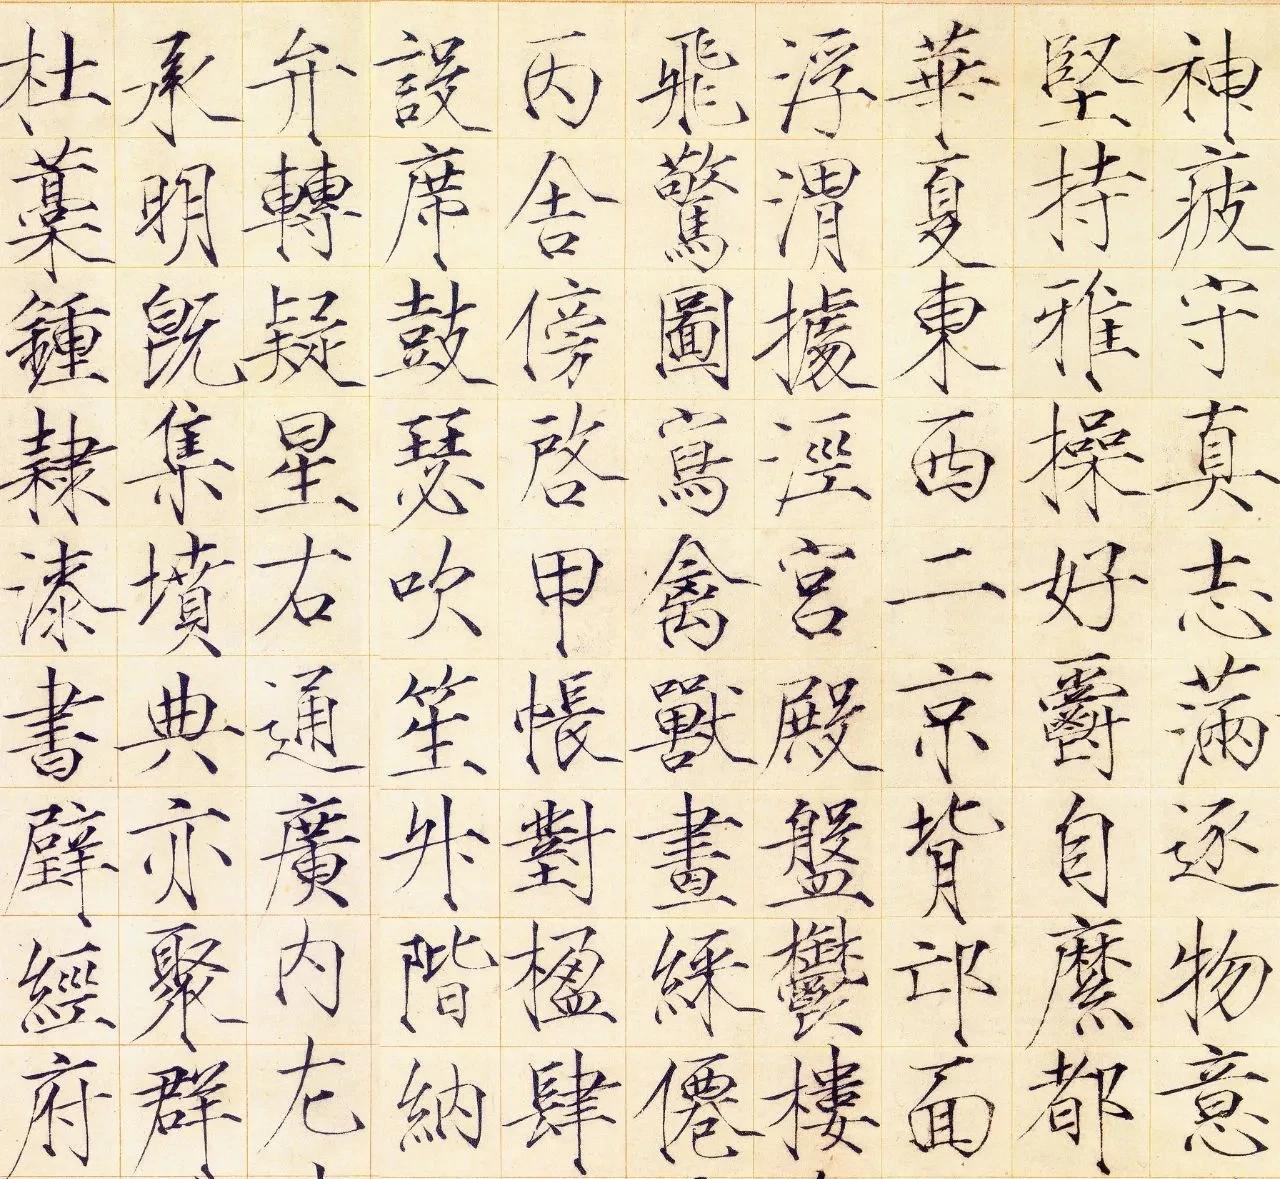 神疲守真志滿逐物意
堅持雅操好爵自縻都
華夏東西二京背邙面
浮渭據涇宮殿盤鬱樓
飛驚圖寫禽獸畫綵僊
丙舍傍啓甲帳對楹肆
設席鼓瑟吹笙升階納
弁轉疑星右通廣内左
承明既集墳典亦聚群
杜藁鍾隸漆書壁經府